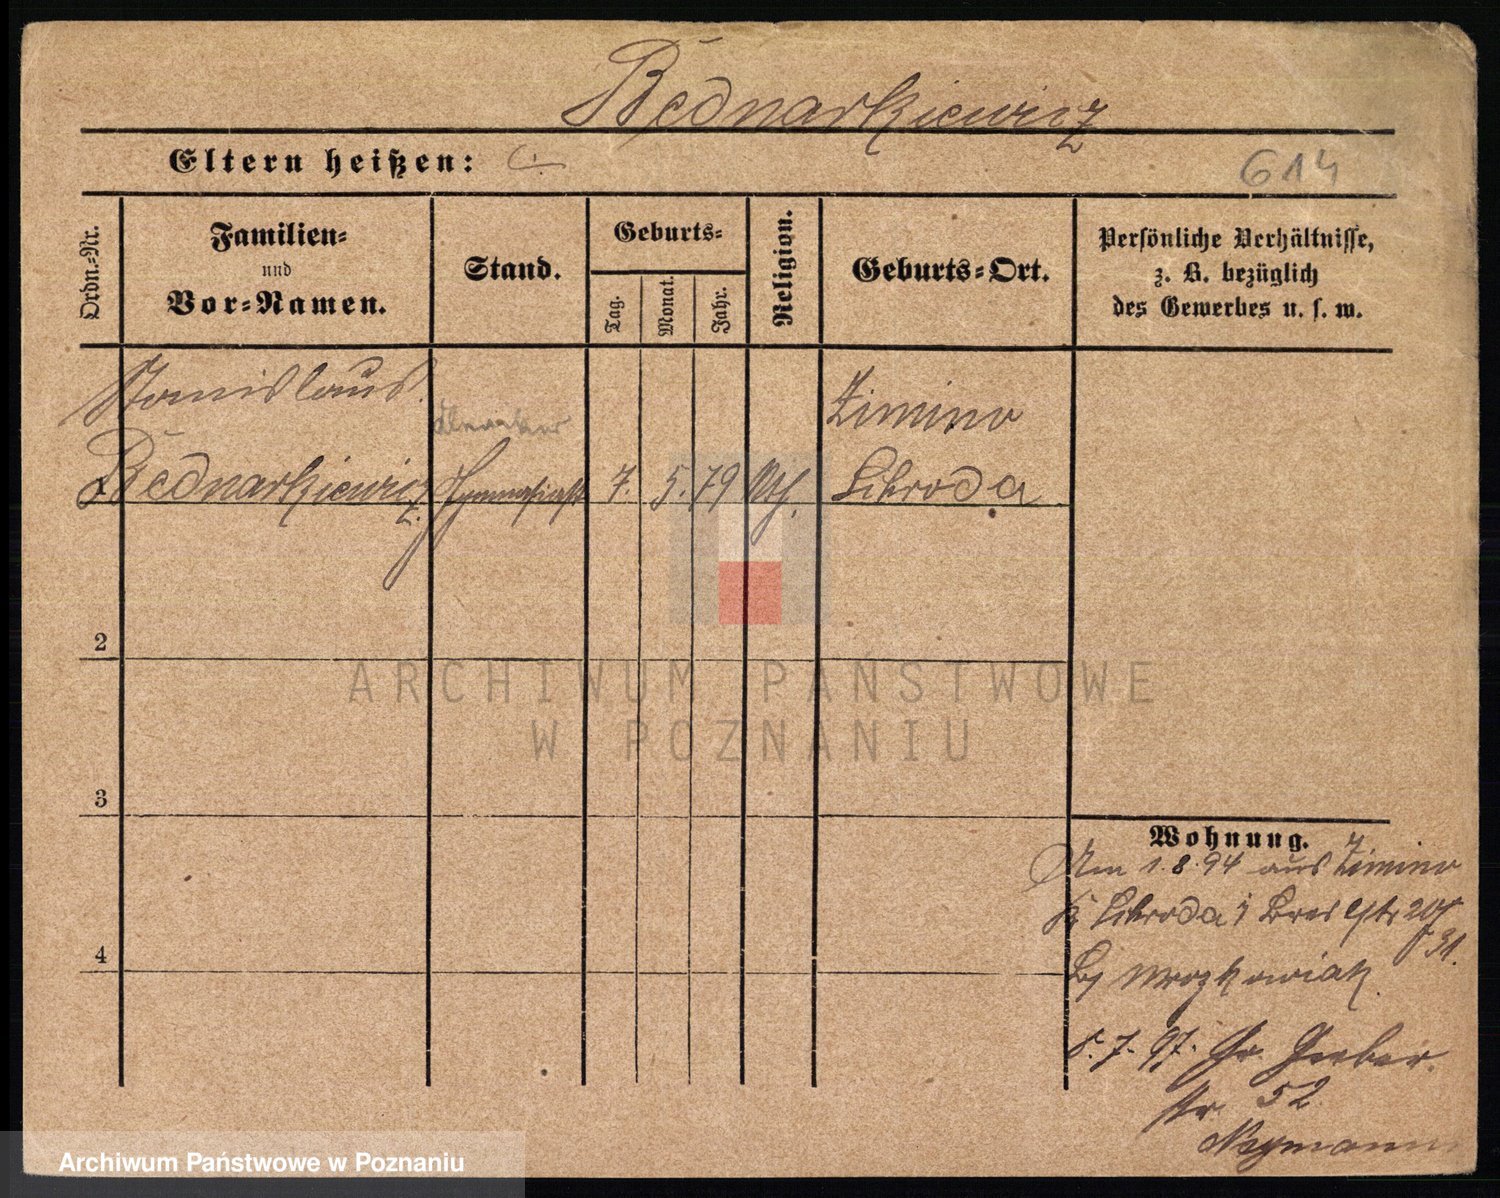 Bednarkiewicz
Eltern heißen:
614
Ordn.-Nr.
Familien-
und
Vor-Namen.
Stand.
Geburts-
Tag.
Monat.
Jahr.
Religion.
Geburts-Ort.
Persönliche Verhältnisse,
z. B. bezüglich
des Gewerbes u. s. w.
Stanislaus
1 Bednarkiewicz Gymnasiast 7. 5. 79 kth. Zimino
Schroda
2
3
4
Wohnung.
Am 1.8.94 aus Zimino
Schroda Bresl str 20
31.
Bj Mrozkowiak
8. 7. 97. Gr. Gerber
str. 52
Neymann
ARCHIWUM PAŃSTWOWE
W POZNANIU
Archiwum Państwowe w Poznaniu